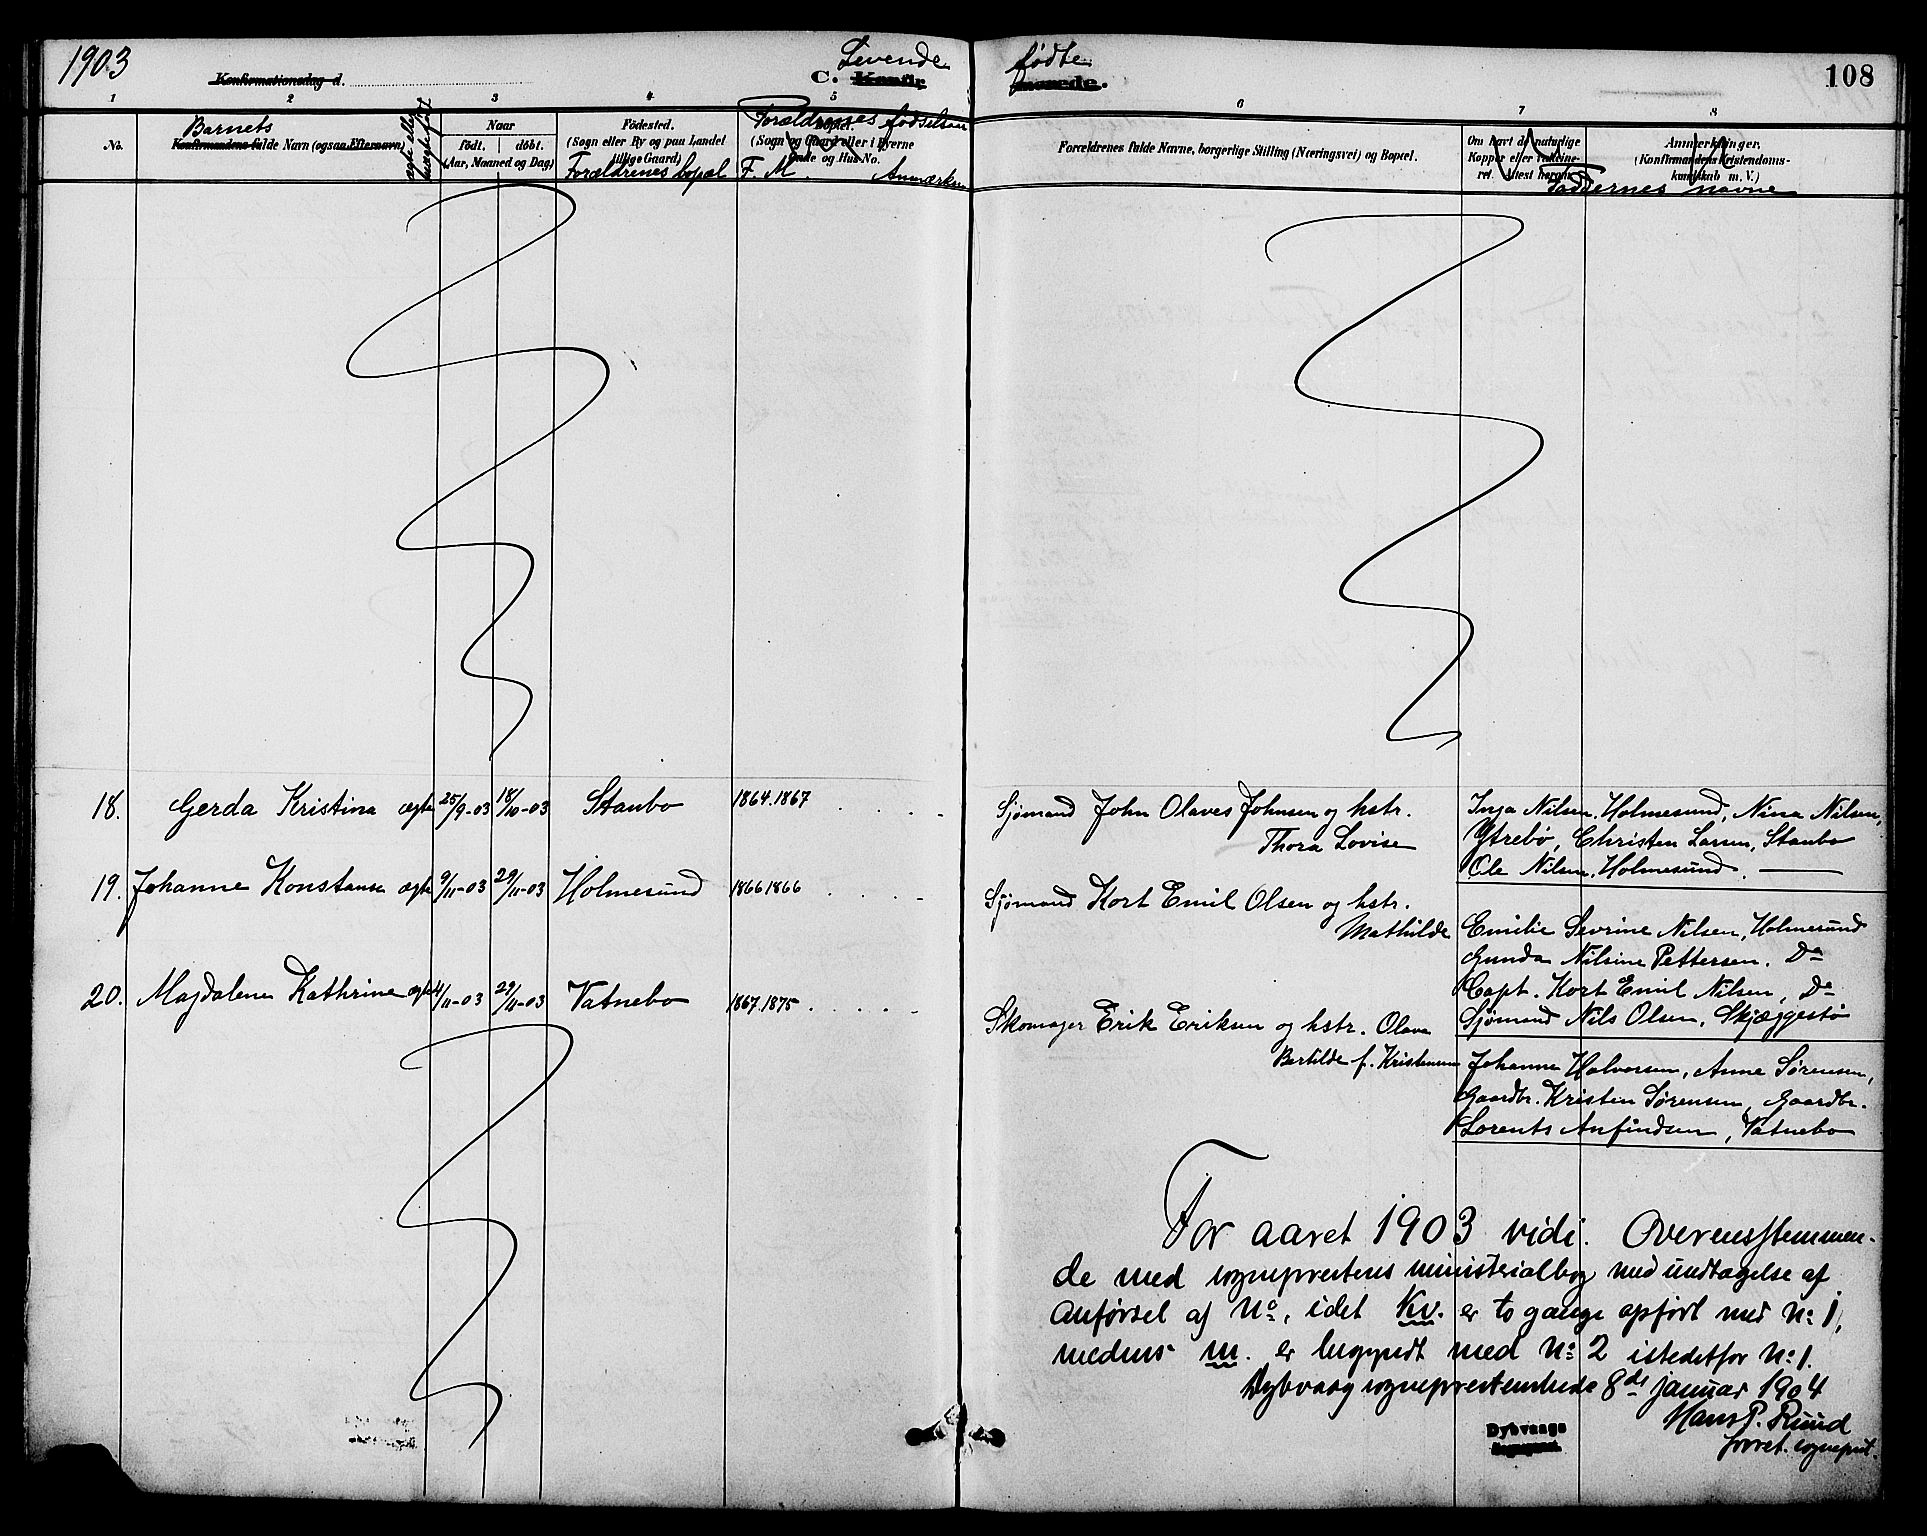 1903
Konfirmationsdag d.
Levende fødte
C. Konfirmerede.
108
1 2 3 4 5 6 7 8
No.
Barnets
Konfirmandens fulde Navn (ogsaa Efternavn)
ægte eller uægte født
Naar
født. døbt.
(Aar, Maaned og Dag)
Fødested.
(Sogn eller By og paa Landet tillige Gaard)
Forældrenes bopæl
Forældrenes fødselsaar
Bopæl.
(Sogn og Gaard eller i Byerne Gade og Hus-No.
F. M. Anmærkn
Forældrenes fulde Navne, borgerlige Stilling (Næringsvei) og Bopæl.
Om havt de naturlige Kopper eller vaccineret. Attest herom.
Anmerkninger.
(Konfirmandens Kristendoms-kundskab m. V.)
Faddernes navne
18. Gerda Kristina ægte 25/9-03 18/10-03 Staubo 1864.1867
Sjømand John Olaves Johnsen og hstr.
Thora Lovise
Inga Nilsen, Holmesund, Nina Nilsen,
Ytrebø, Christen Larsen, Staubo
Ole Nilsen, Holmesund.
19. Johanne Konstanse ægte 9/11-03 29/11-03 Holmesund 1866.1866
Sjømand Kort Emil Olsen og hstr.
Mathilde
Emilie Sevrine Nilsen, Holmesund
Gunda Nilsine Pettersen. Do
Capt. Kort Emil Nilsen, Do
Sjømand Nils Olsen, Skjæggestø
20. Magdalene Kathrine ægte 4/11-03 29/11-03 Vatnebo 1867.1875
Skomager Erik Eriksen og hstr. Olava
Bertilde f. Kristensen
Johanne Halvorsen, Anne Sørensen,
Gaardbr. Kristen Sørensen, Gaardbr.
Lorents Anfindsen, Vatnebo
For aaret 1903 vidi. Overensstemmen-
de med sogneprestens ministerialbog med undtagelse af
anførsel af No, idet Kv. er to gange opført med No 1,
medens m. er begyndt med No 2 istedetfor No 1.
Dybvaag sogneprestembede 8de januar 1904
Hans P. Ruud
forret. sogneprest.
Dybvaags